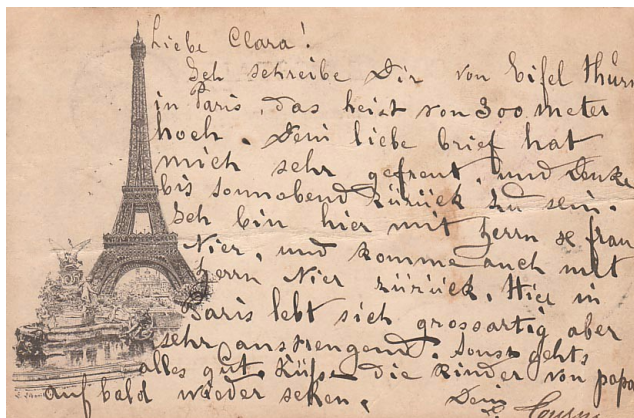 Liebe Clara!
Ich schreibe Dir von Eifel thürm
in Paris, das heist von 300 meter
hoch. Dein liebe brief hat
mich sehr gefreut, und denke
bis sonnabend zürück zu sein.
Ich bin hier mit Herrn & frau
Nier, und komme auch mit
Herrn Nier zürück. Hier in
Paris lebt sich grossartig aber
sehr anstrengend. Sonst gehts
alles gut. Küße die Kinder von papa
auf bald wieder sehen. Dein